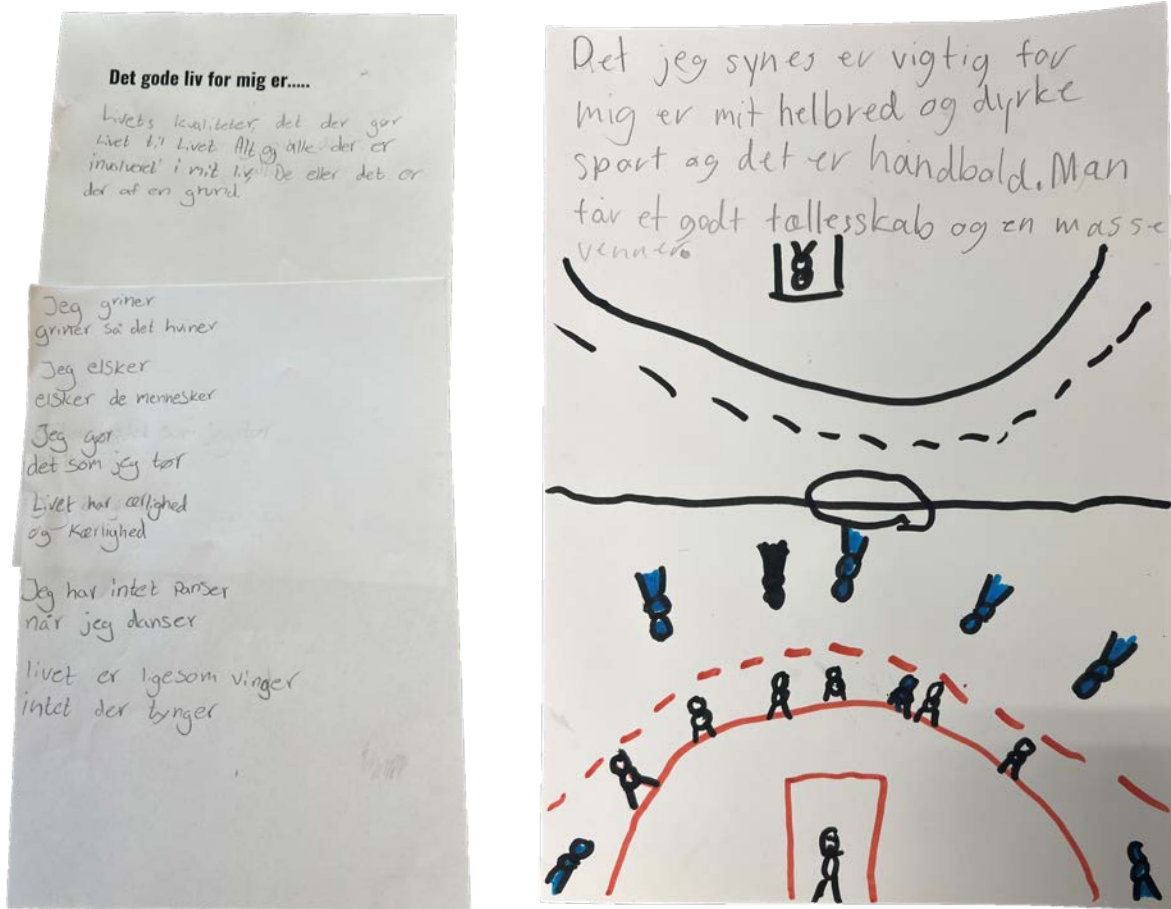 Det gode liv for mig er.....
Livets kvaliteter, det der gør
Livet til Livet. Alt og alle der er
involveret i mit liv. De eller det er
der af en grund.
Jeg griner
griner så det hviner
Jeg elsker
elsker de mennesker
Jeg gør
det som jeg tør
Livet har ærlighed
og kærlighed
Jeg har intet Panser
når jeg danser
livet er ligesom vinger
intet der tynger
Det jeg synes er vigtig for
mig er mit helbred og dyrke
sport og det er håndbold. Man
får et godt fællesskab og en masse
venner.